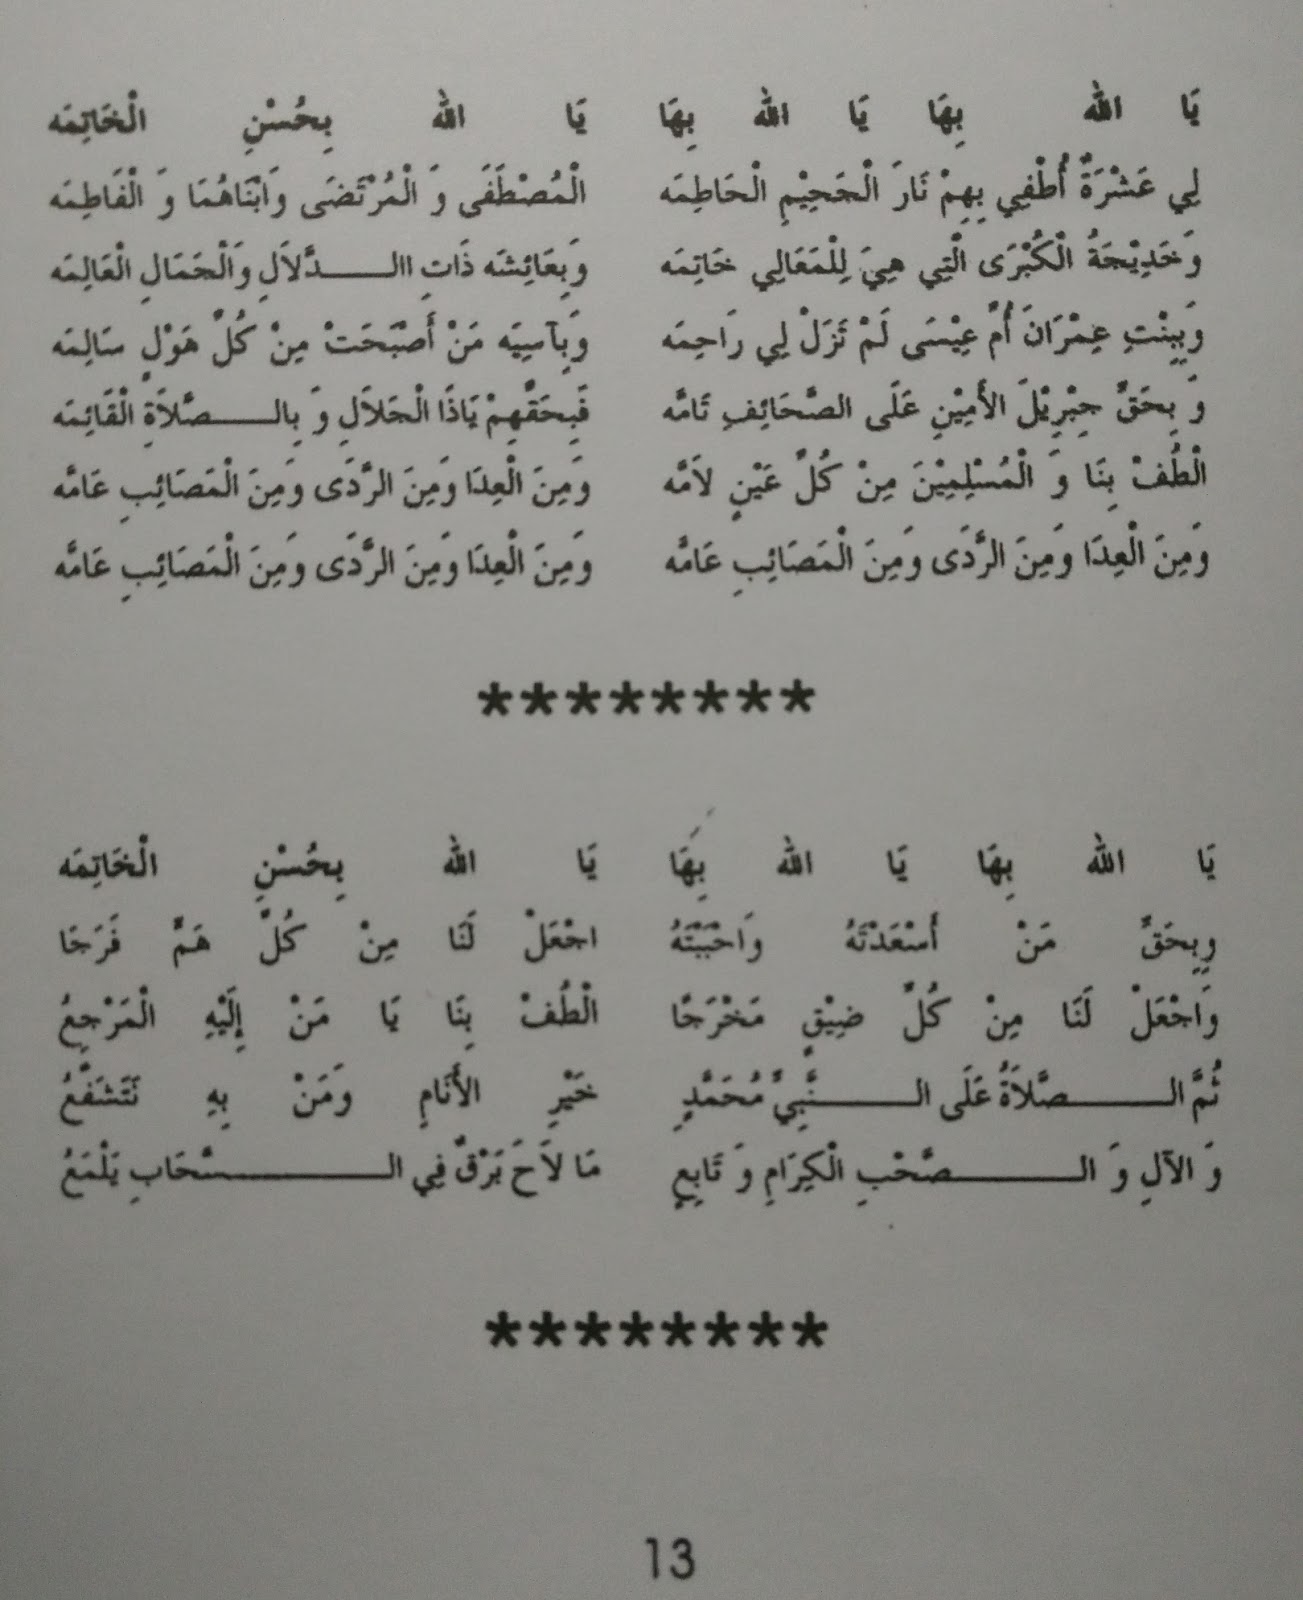 يَا الله بِهَا يَا الله بِهَا يَا الله بِحُسْنِ الْخَاتِمَه
لِي عَشْرَةٌ أُطْفِي بِهِمْ نَارَ الْجَحِيْمِ الْحَاطِمَه الْمُصْطَفَى وَ الْمُرْتَضَى وَابْنَاهُمَا وَ الْفَاطِمَه
وَخَدِيْجَةُ الْكُبْرَى الَّتِي هِيَ لِلْمَعَالِي خَاتِمَه وَبِعَائِشَه ذَاتِ االـــدَّلاَلِ وَالْجَمَالِ الْعَالِمَه
وَبِبِنْتِ عِمْرَانَ أُمِّ عِيْسَى لَمْ تَزَلْ لِي رَاحِمَه وَبِآسِيَه مَنْ أَصْبَحَتْ مِنْ كُلِّ هَوْلٍ سَالِمَه
وَ بِحَقِّ جِبْرِيْلَ الأَمِيْنِ عَلَى الصَّحَائِفِ تَامَّه فَبِحَقِّهِمْ يَاذَا الْجَلاَلِ وَ بِالـــصَّلاَةِ الْقَائِمَه
الْطُفْ بِنَا وَ الْمُسْلِمِيْنَ مِنْ كُلِّ عَيْنٍ لاَمَّه وَمِنَ الْعِدَا وَمِنَ الرَّدَى وَمِنَ الْمَصَائِبِ عَامَّه
وَمِنَ الْعِدَا وَمِنَ الرَّدَى وَمِنَ الْمَصَائِبِ عَامَّه وَمِنَ الْعِدَا وَمِنَ الرَّدَى وَمِنَ الْمَصَائِبِ عَامَّه
********
يَا الله بِهَا يَا الله بِهَا يَا الله بِحُسْنِ الْخَاتِمَه
وِبِحَقِّ مَنْ أَسْعَدْتَهُ وَاحْبَبْتَهُ اجْعَلْ لَنَا مِنْ كُلِّ هَمٍّ فَرَجَا
وَاجْعَلْ لَنَا مِنْ كُلِّ ضِيْقٍ مَخْرَجًا الْطُفْ بِنَا يَا مَنْ إِلَيْهِ الْمَرْجِعُ
ثُمَّ الـــصَّلاَةُ عَلَى الـــنَّبِيِّ مُحَمَّدٍ خَيْرِ الأَنَامِ وَمَنْ بِهِ نَتَشَفَّعُ
وَ الآلِ وَ الـــصَّحْبِ الْكِرَامِ وَ تَابِعٍ مَا لاَحَ بَرْقٌ فِي الـــسَّحَابِ يَلْمَعُ
********
13